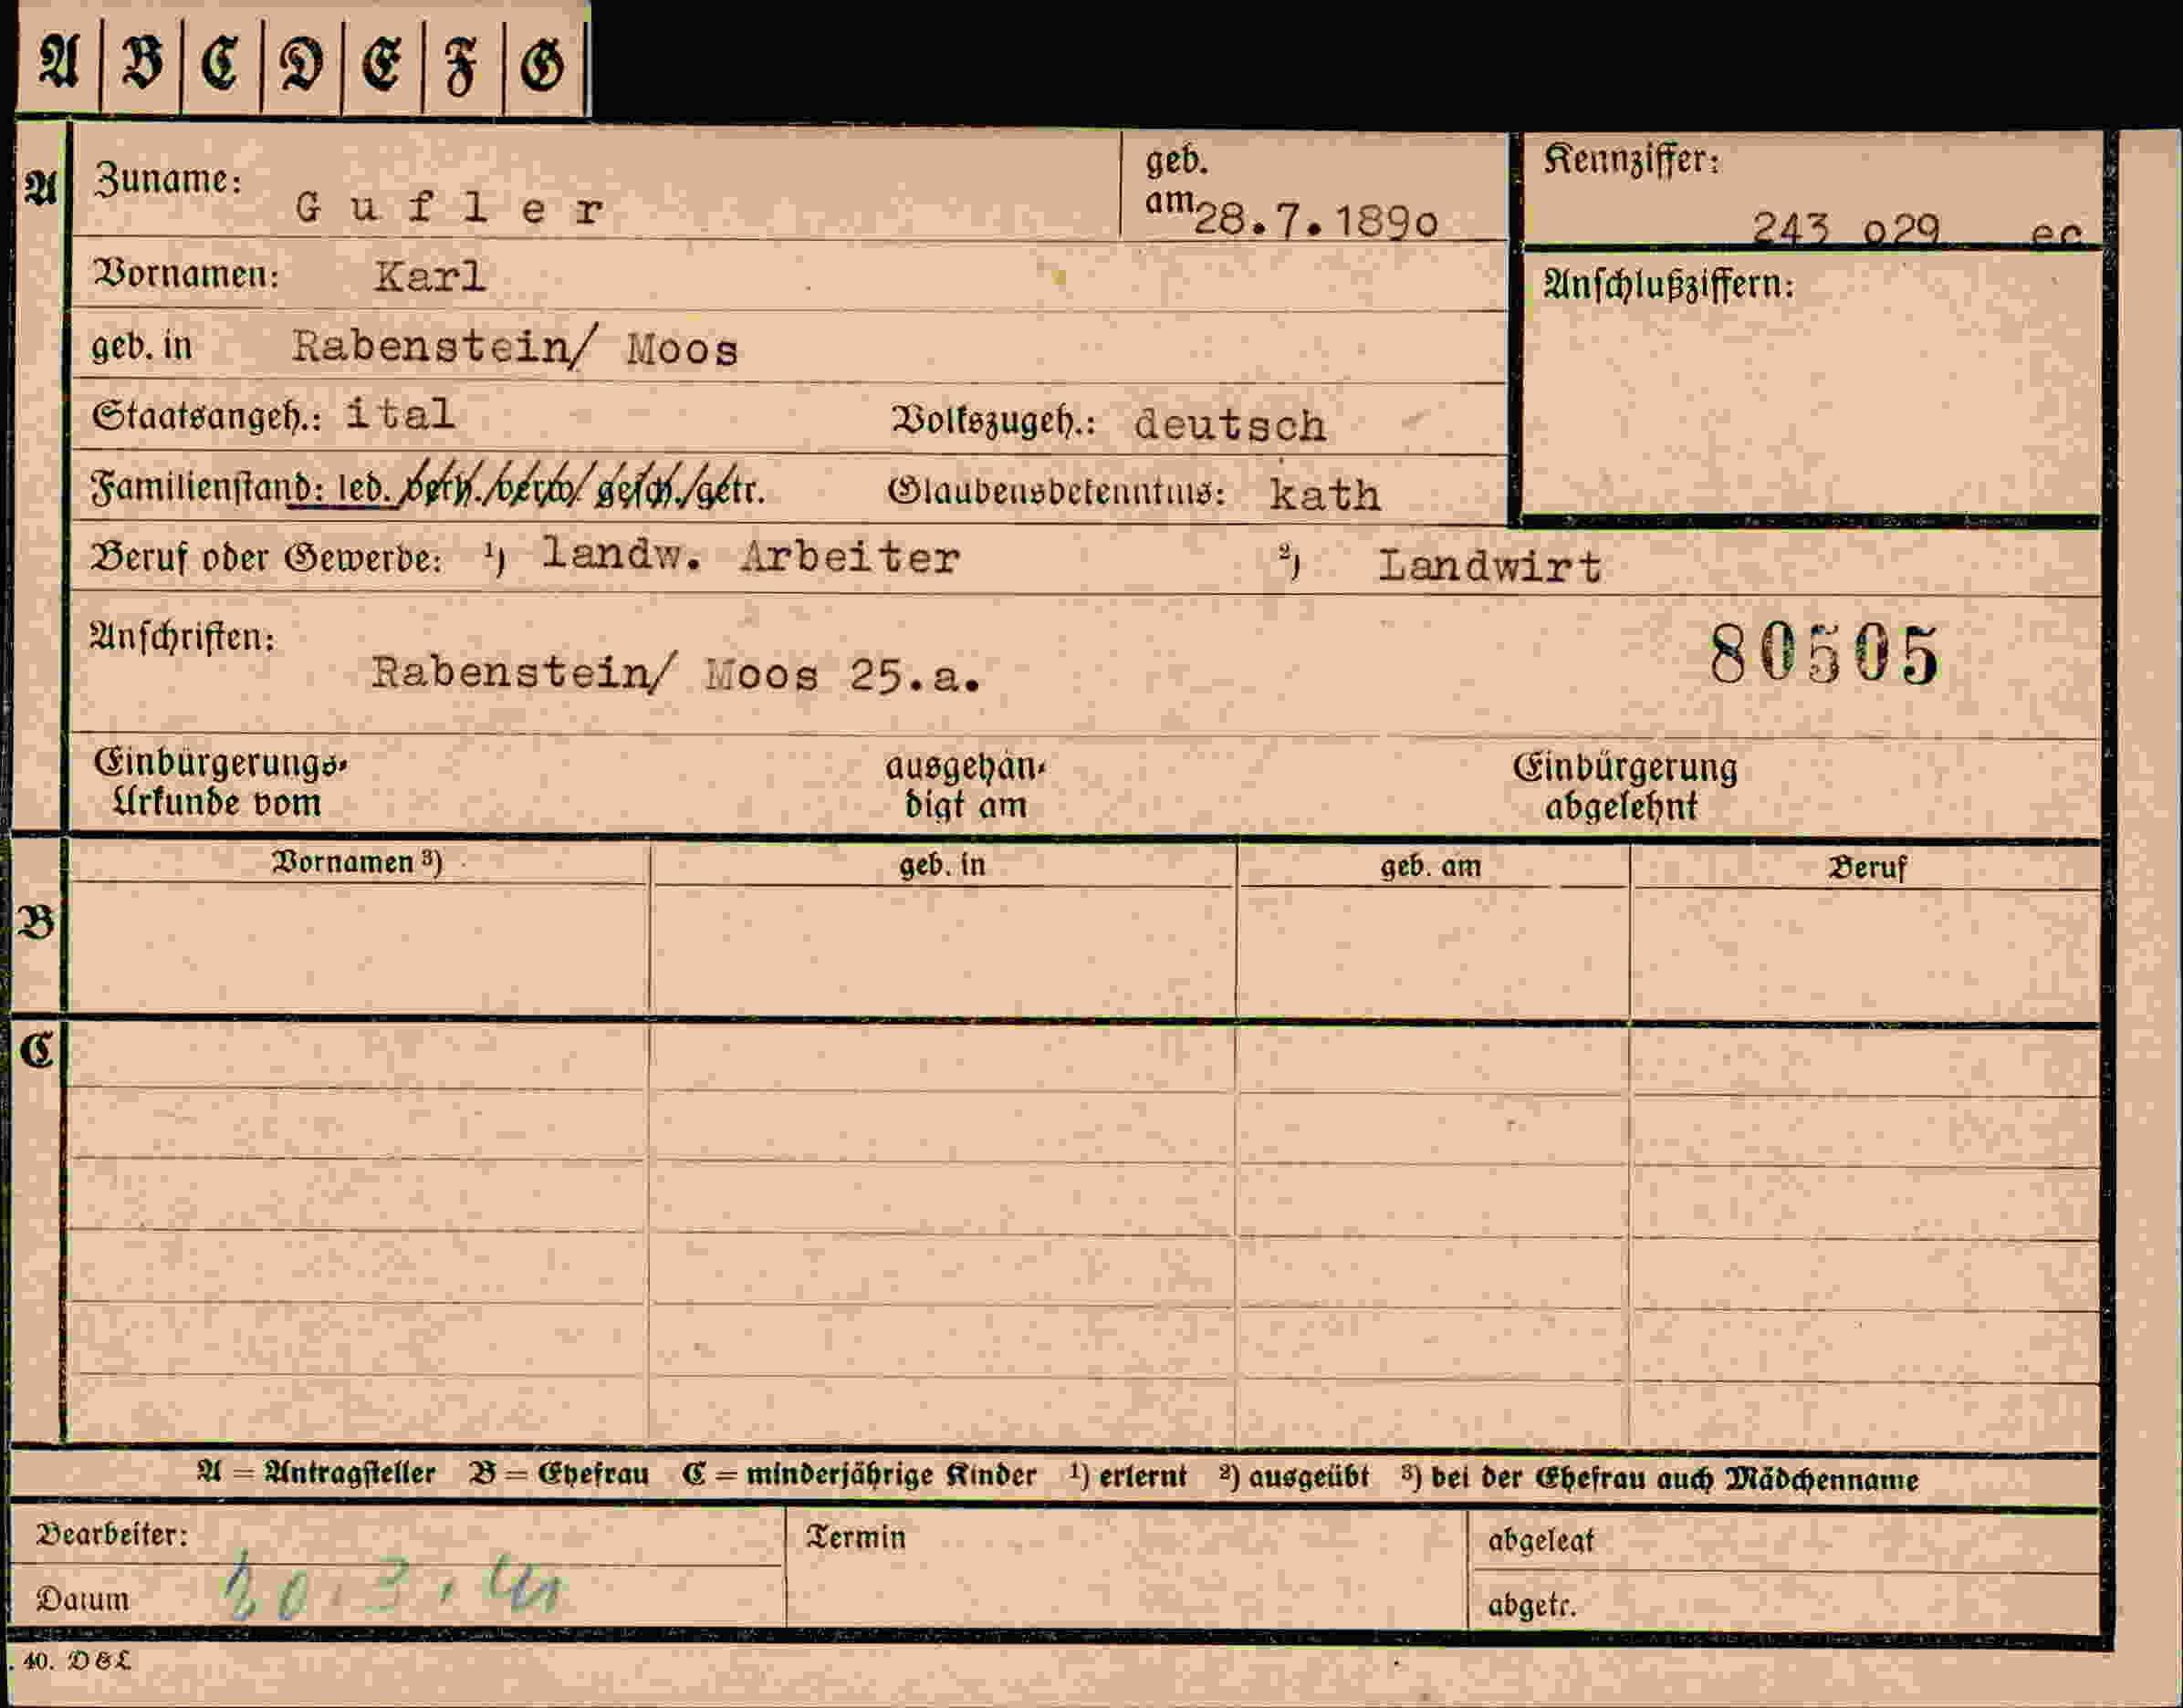 A B C D E F G
A Zuname: Gufler geb. am 28.7.1890 Kennziffer: 243 029 ec
Vornamen: Karl Anschlußziffern:
geb. in Rabenstein/ Moos
Staatsangeh.: ital Volkszugeh.: deutsch
Familienstand: led./verh./verw./gesch./getr. Glaubensbekenntnis: kath
Beruf oder Gewerbe: ¹) landw. Arbeiter ²) Landwirt
Anschriften: 80505
Rabenstein/ Moos 25.a.
Einbürgerungs- ausgehän- Einbürgerung
Urkunde vom digt am abgelehnt
Vornamen ³) geb. in geb. am Beruf
B
C
A = Antragsteller B = Ehefrau C = minderjährige Kinder ¹) erlernt ²) ausgeübt ³) bei der Ehefrau auch Mädchenname
Bearbeiter: Termin abgelegt
Datum abgetr.
. 40. D&L